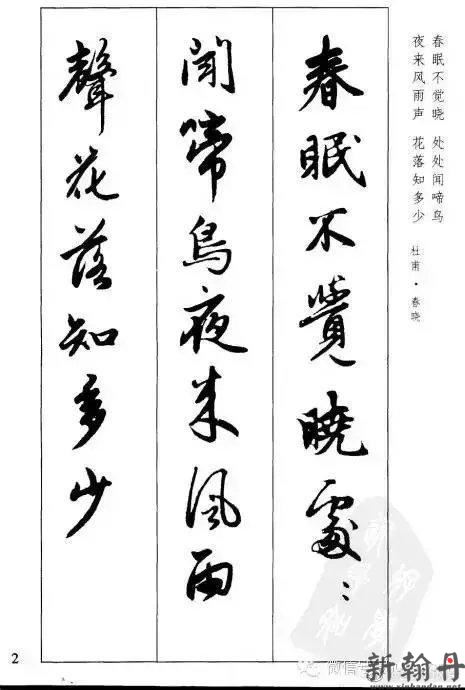 春眠不觉晓 处处闻啼鸟
夜来风雨声 花落知多少
杜甫·春晓
春眠不覺曉處〻
聞啼鳥夜来風雨
聲花落知多少
2
微信号
新翰丹